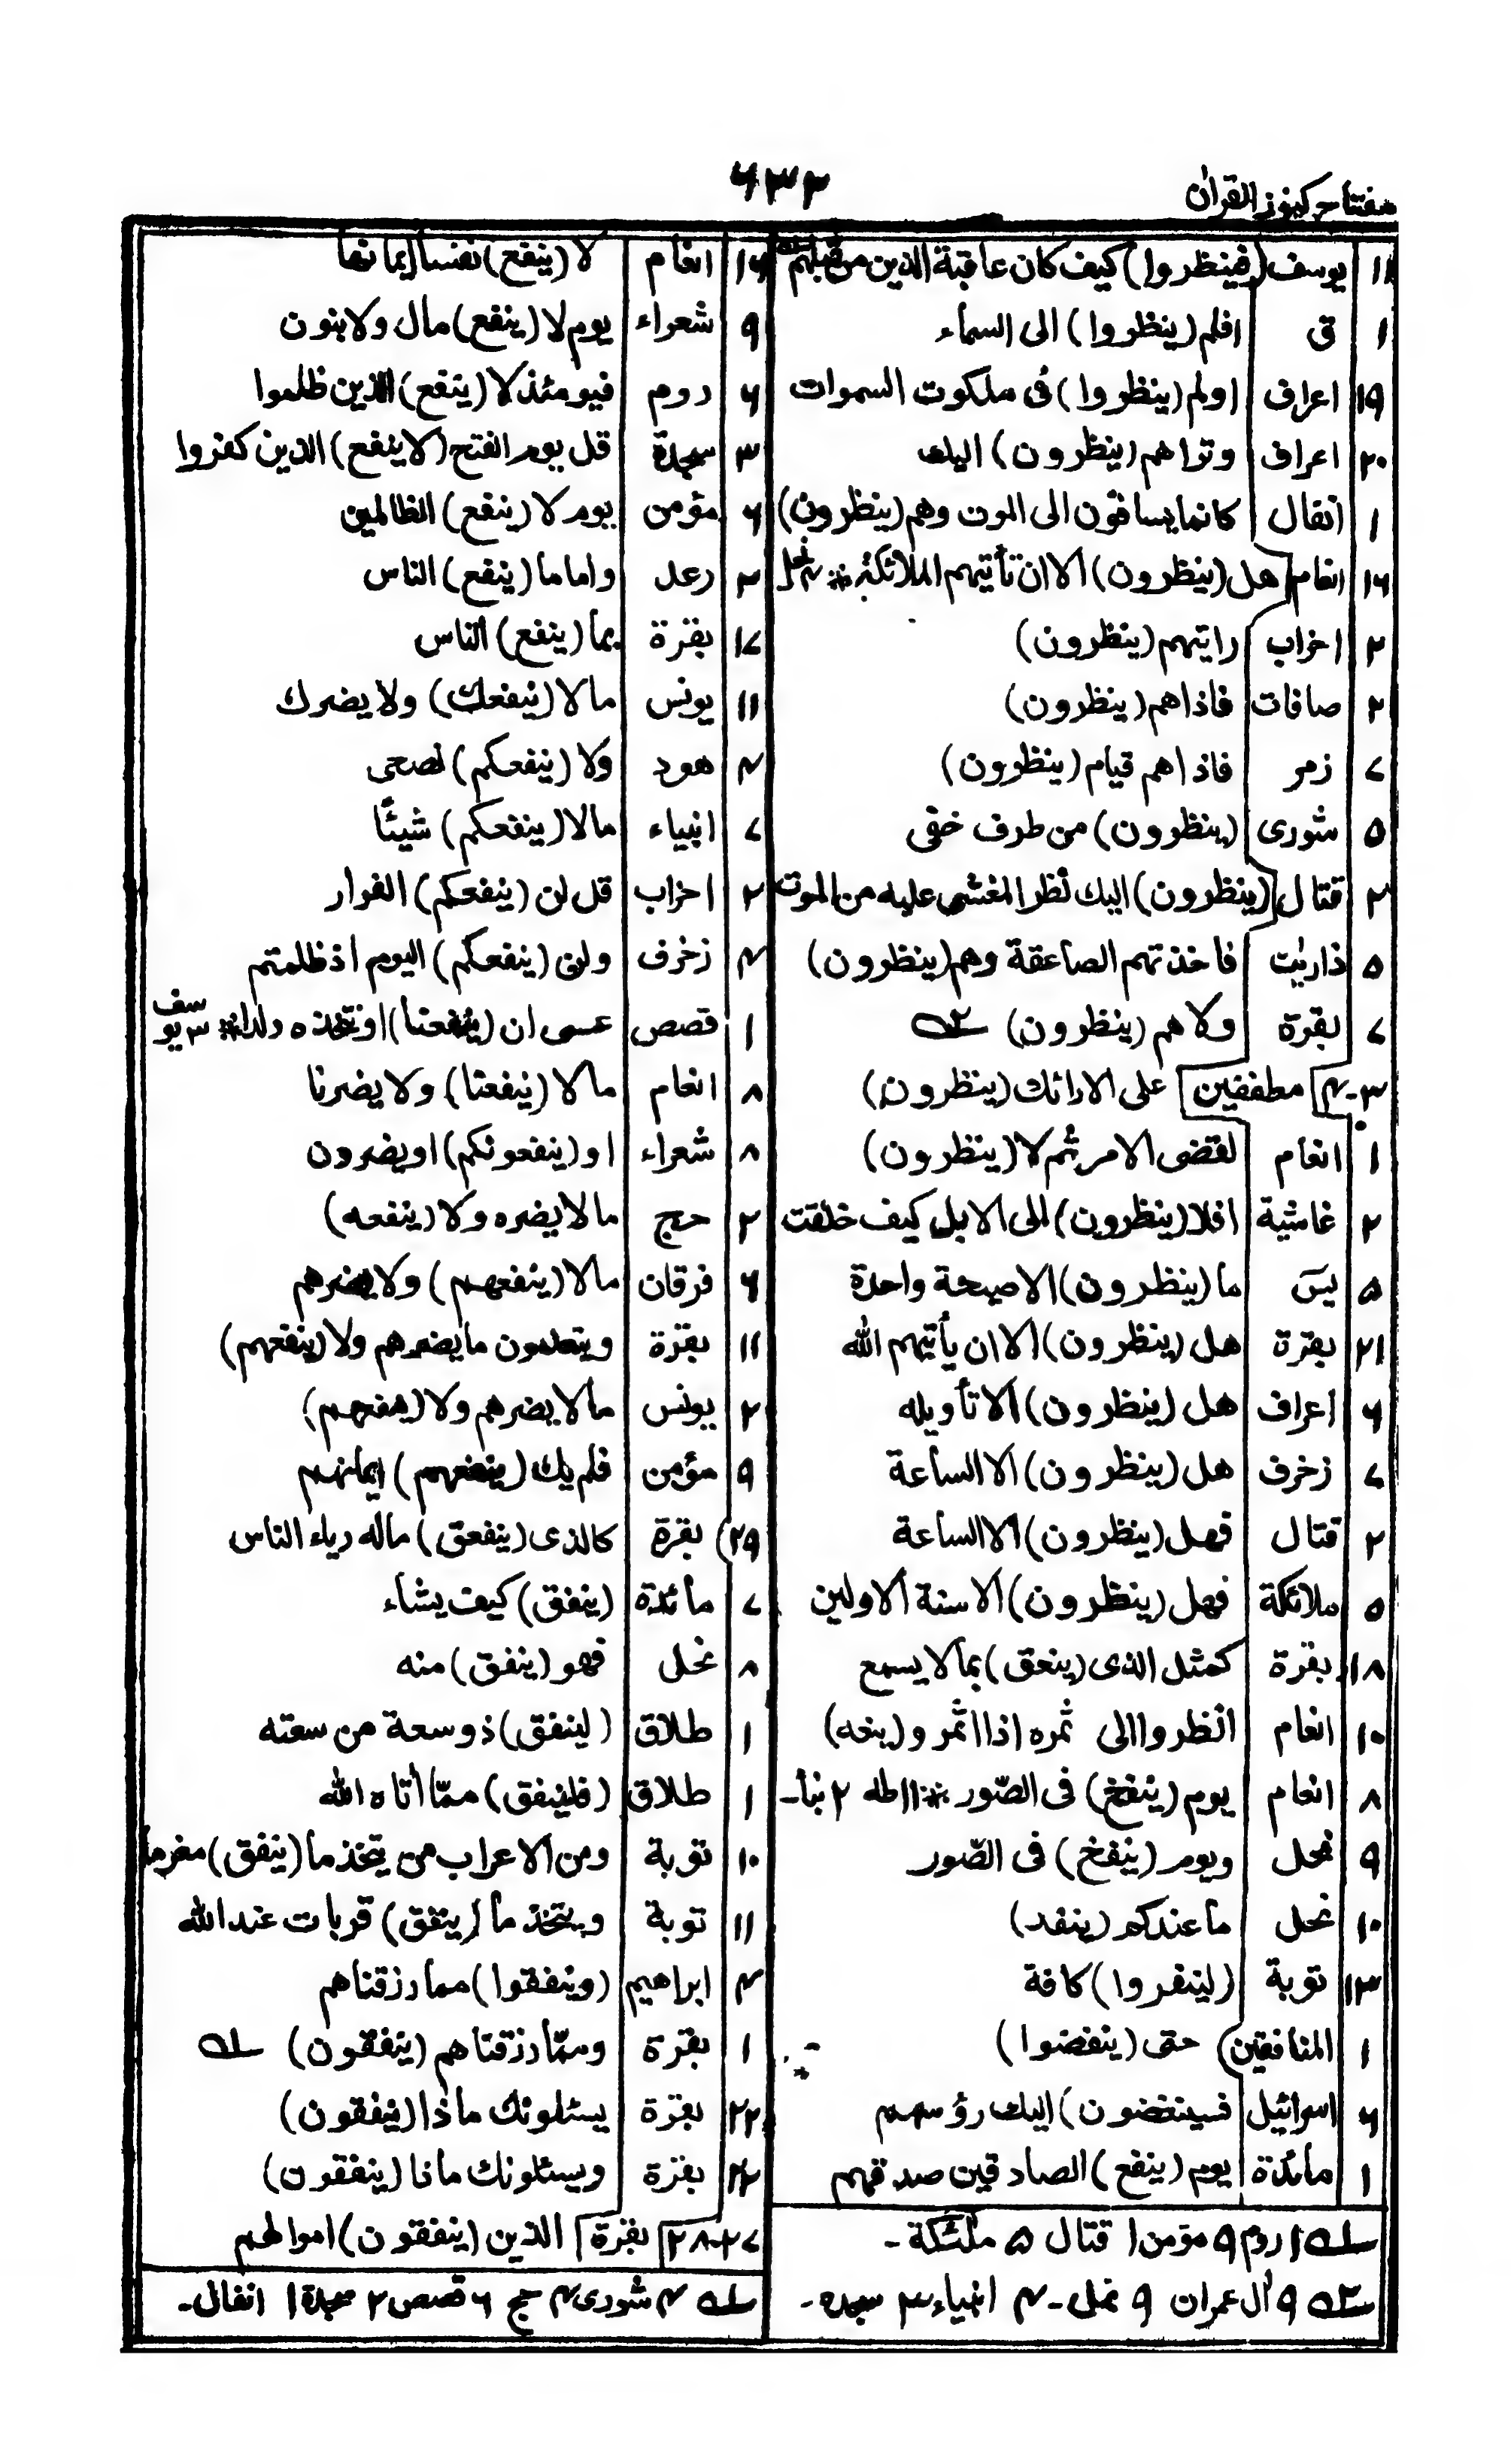 مفتاح كنوز القرآن
۶۳۲
۱۲ يوسف (فينظروا) كيف كان عاقبة الذين من قبلهم
۱ ق افلم (ينظروا) الى السماء
۱۹ اعراف اولم (ينظروا) فى ملكوت السموات
۲۰ اعراف وتراهم (ينظرون) اليك
۱ انفال كانما يساقون الى الموت وهم (ينظرون)
۱۶ انعام هل (ينظرون) الا ان تأتيهم الملائكة * ۴ نحل
۲ احزاب رايتهم (ينظرون)
۲ صافات فاذاهم (ينظرون)
۷ زمر فاذاهم قيام (ينظرون)
۵ شورى (ينظرون) من طرف خفى
۲ قتال (ينظرون) اليك نظر المغشى عليه من الموت
۵ ذاريت فاخذتهم الصاعقة وهم (ينظرون)
۷ بقرة ولا هم (ينظرون) ۲ـه
۳-۴ مطففين على الارائك (ينظرون)
۱ انعام لقضى الامر ثم لا (ينظرون)
۲ غاشية افلا (ينظرون) الى الابل كيف خلقت
۵ يس ما (ينظرون) الا صيحة واحدة
۲۱ بقرة هل (ينظرون) الا ان يأتيهم الله
۶ اعراف هل (ينظرون) الا تأويله
۷ زخرف هل (ينظرون) الا الساعة
۲ قتال فهل (ينظرون) الا الساعة
۵ ملائكة فهل (ينظرون) الا سنة الاولين
۱۸ بقرة كمثل الذى (ينعق) بما لا يسمع
۱۰ انعام انظروا الى ثمره اذا اثمر و (ينعه)
۸ انعام يوم (ينفخ) فى الصّور * ااطه ۲ نبا-
۹ نمل ويوم (ينفخ) فى الصّور
۱۰ نحل ما عندكم (ينفد)
۱۳ توبة (لينفروا) كافة
۱ المنافقين حتى (ينفضوا)
۶ اسرائيل فسينغضون) اليك رؤسهم
۱ مائدة يوم (ينفع) الصادقين صدقهم
۱ـه ۱ روم ۹ مؤمن ۱ قتال ۵ ملئكة-
۲ـه ۹ أل عمران ۹ نحل-۴ انبياء ۳ سجده-
۱۶ انعام لا (ينفع) نفسا ايمانها
۹ شعراء يوم لا (ينفع) مال ولا بنون
۶ روم فيومئذ لا (ينفع) الذين ظلموا
۳ سجدة قل يوم الفتح (لا ينفع) الذين كفروا
۶ مؤمن يوم لا (ينفع) الظالمين
۲ رعد واما ما (ينفع) الناس
۱۷ بقرة بما (ينفع) الناس
۱۱ يونس ما لا (ينفعك) ولا يضرك
۴ هود ولا (ينفعكم) نصحى
۷ انبياء مالا (ينفعكم) شيئًا
۲ احزاب قل لن (ينفعكم) الفرار
۴ زخرف ولن (ينفعكم) اليوم اذ ظلمتم
۱ قصص عسى ان (ينفعنا) او نتخذه ولدا * ۳ يوسف
۸ انعام ما لا (ينفعنا) ولا يضرنا
۸ شعراء او (ينفعونكم) او يضرون
۲ حج ما لا يضره ولا (ينفعه)
۶ فرقان مالا (ينفعهم) ولا يضرهم
۱۱ بقرة ويتعلمون ما يضرهم ولا (ينفعهم)
۲ يونس ما لا يضرهم ولا (ينفعهم)
۹ مؤمن فلم يك (ينفعهم) ايمانهم
۲۹ بقرة كالذى (ينفعق) ماله رياء الناس
۷ مائدة (ينفق) كيف يشاء
۸ نحل فهو (ينفق) منه
۱ طلاق (لينفق) ذوسعة من سعته
۱ طلاق (فلينفق) ممّا أتاه الله
۱۰ توبة ومن الاعراب من يتخذ ما (ينفق) مغرما
۱۱ توبة ويتخذ ما (ينفق) قربات عند الله
۴ ابراهيم (وينفقوا) مما رزقناهم
۱ بقرة وممّا رزقناهم (ينفقون) ۱ـه
۲۲ بقرة يسئلونك ماذا (ينفقون)
بقرة ويسئلونك ماذا (ينفقون)
۲۷-۲۸ بقرة الذين (ينفقون) اموالهم
۱ـه ۴ شورى ۴ حج ۶ قصص ۲ سجدة ۱ انفال-